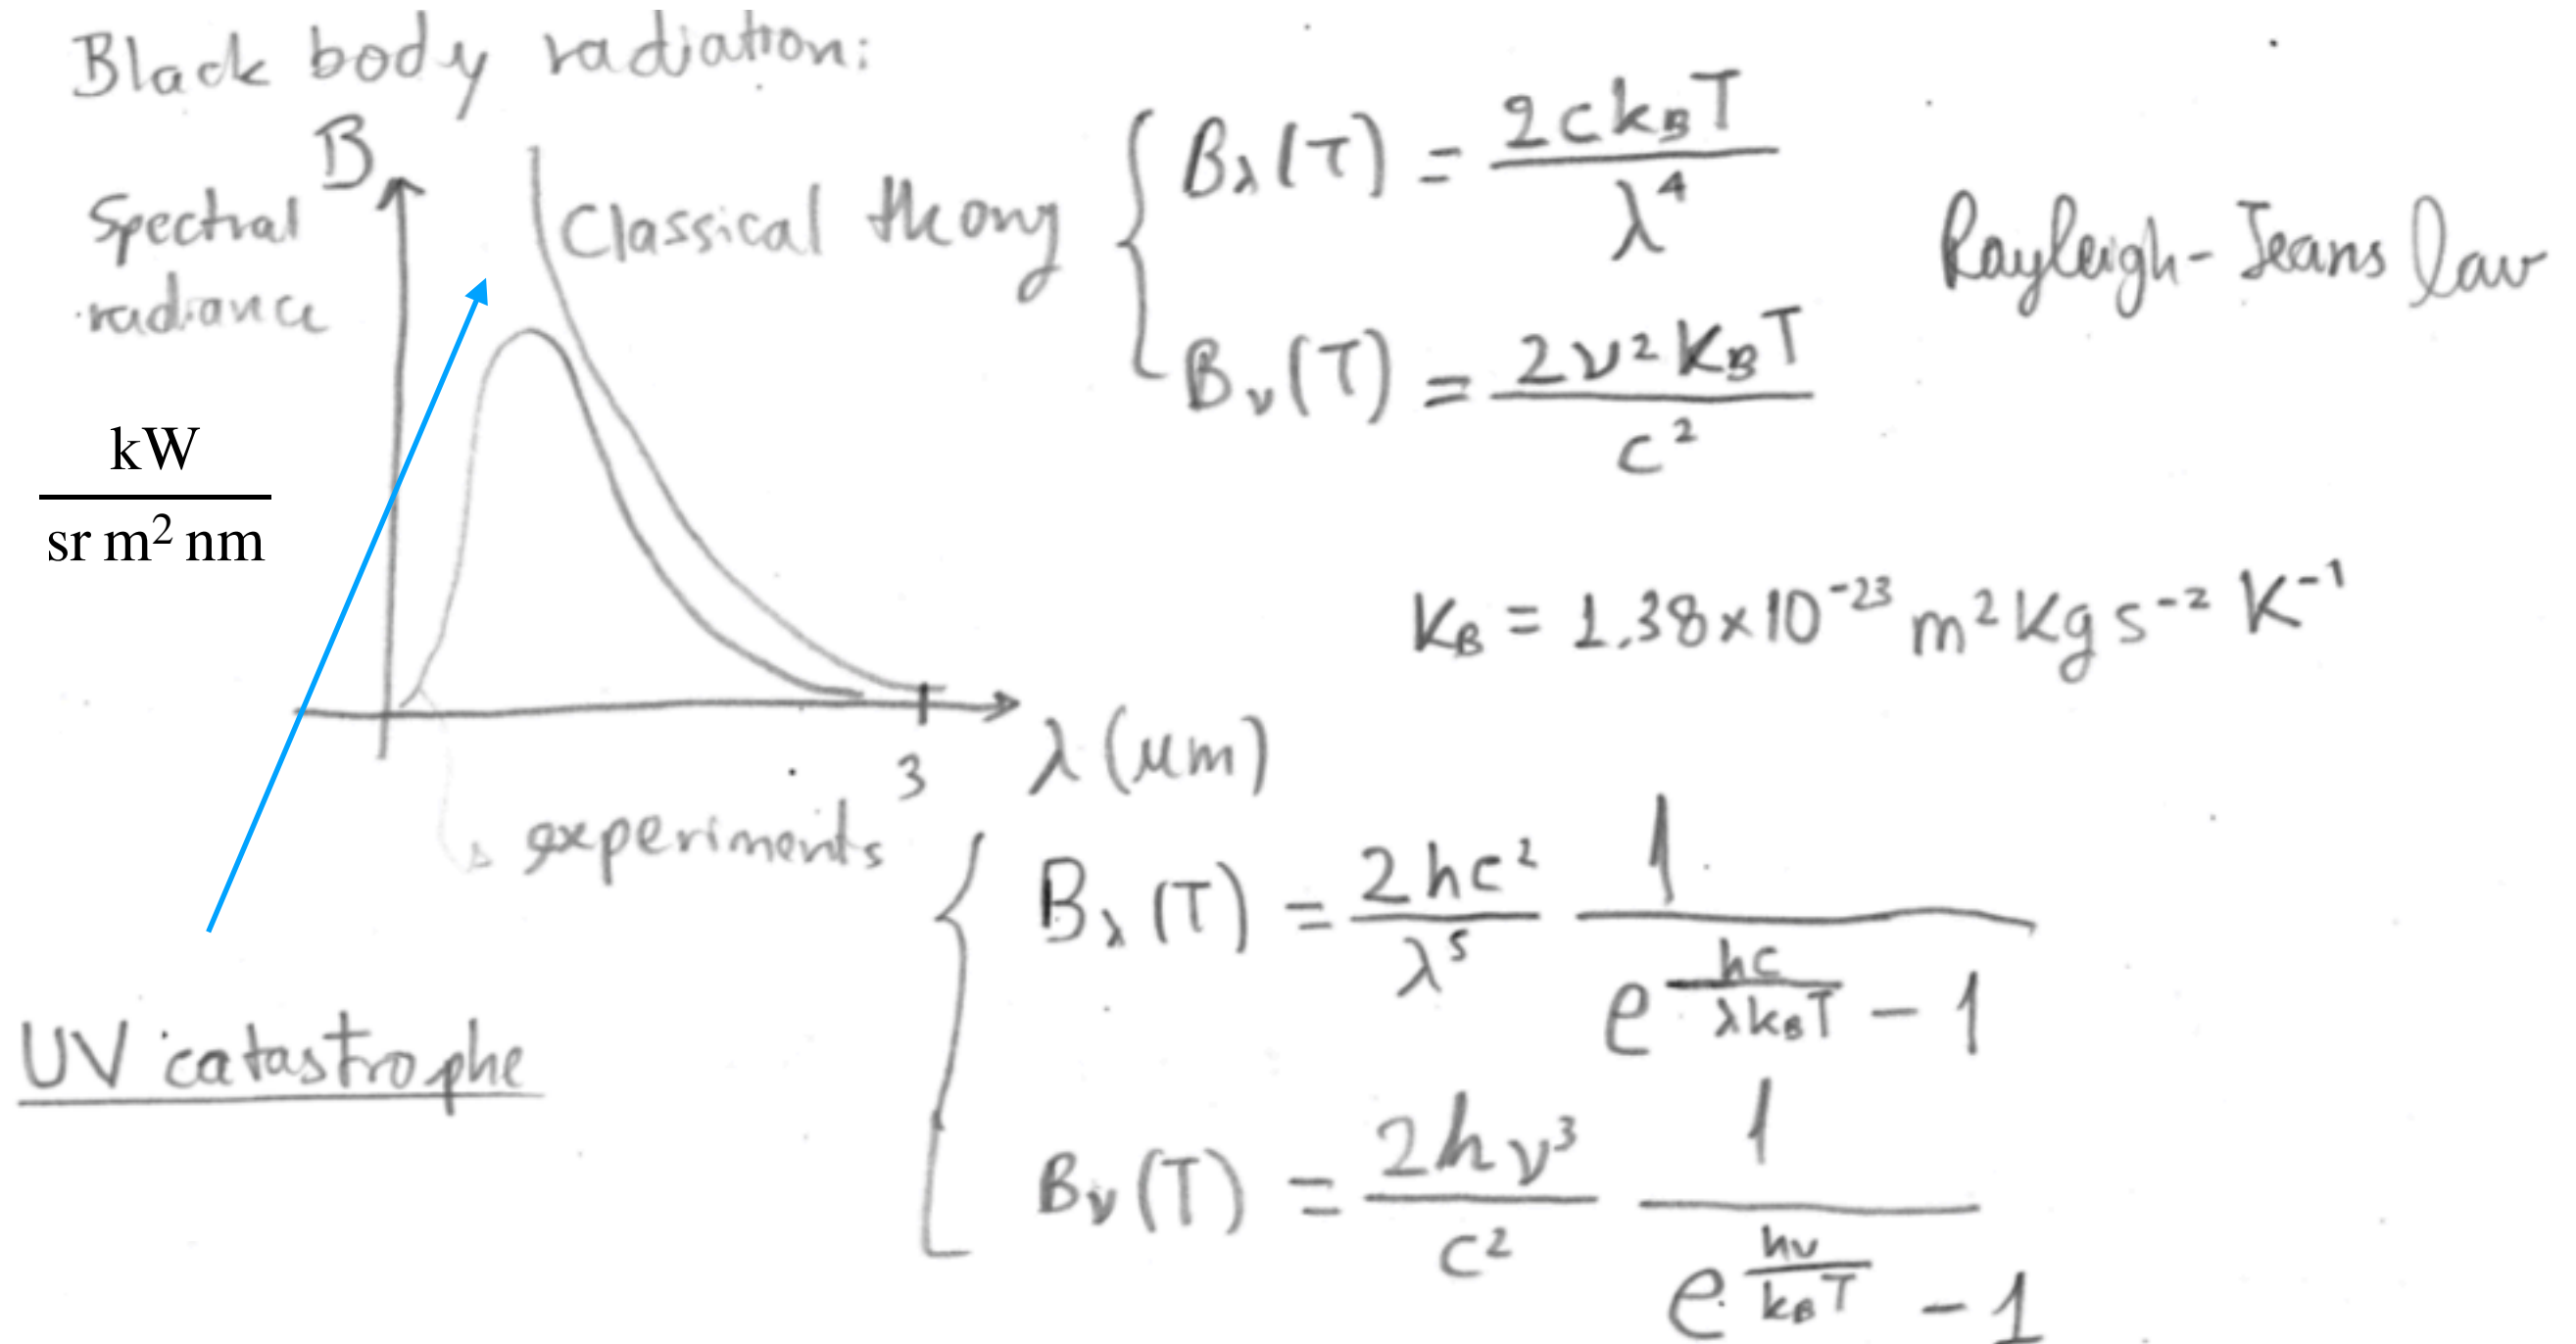 Black body radiation:
B
Spectral
radiance
kW
sr m² nm
Classical theory
B_λ(T) = 2ck_BT / λ⁴
B_ν(T) = 2ν²K_BT / c²
Rayleigh-Jeans law
K_B = 1.38×10⁻²³ m² Kg s⁻² K⁻¹
3
λ (μm)
experiments
UV catastrophe
B_λ(T) = 2hc² / λ⁵ 1 / e^(hc / λk_BT) - 1
B_ν(T) = 2hν³ / c² 1 / e^(hν / k_BT) - 1